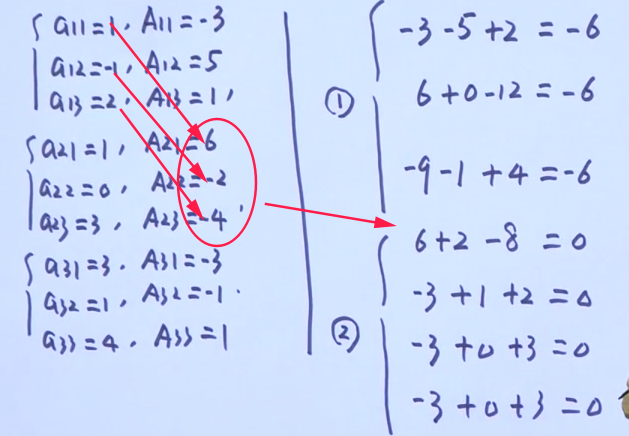 a11=1, A11=-3
a12=-1, A12=5
a13=2, A13=1,
a21=1, A21=6
a22=0, A22=-2
a23=3, A23=-4
a31=3, A31=-3
a32=1, A32=-1.
a33=4, A33=1
①
-3-5+2=-6
6+0-12=-6
-9-1+4=-6
②
6+2-8=0
-3+1+2=0
-3+0+3=0
-3+0+3=0